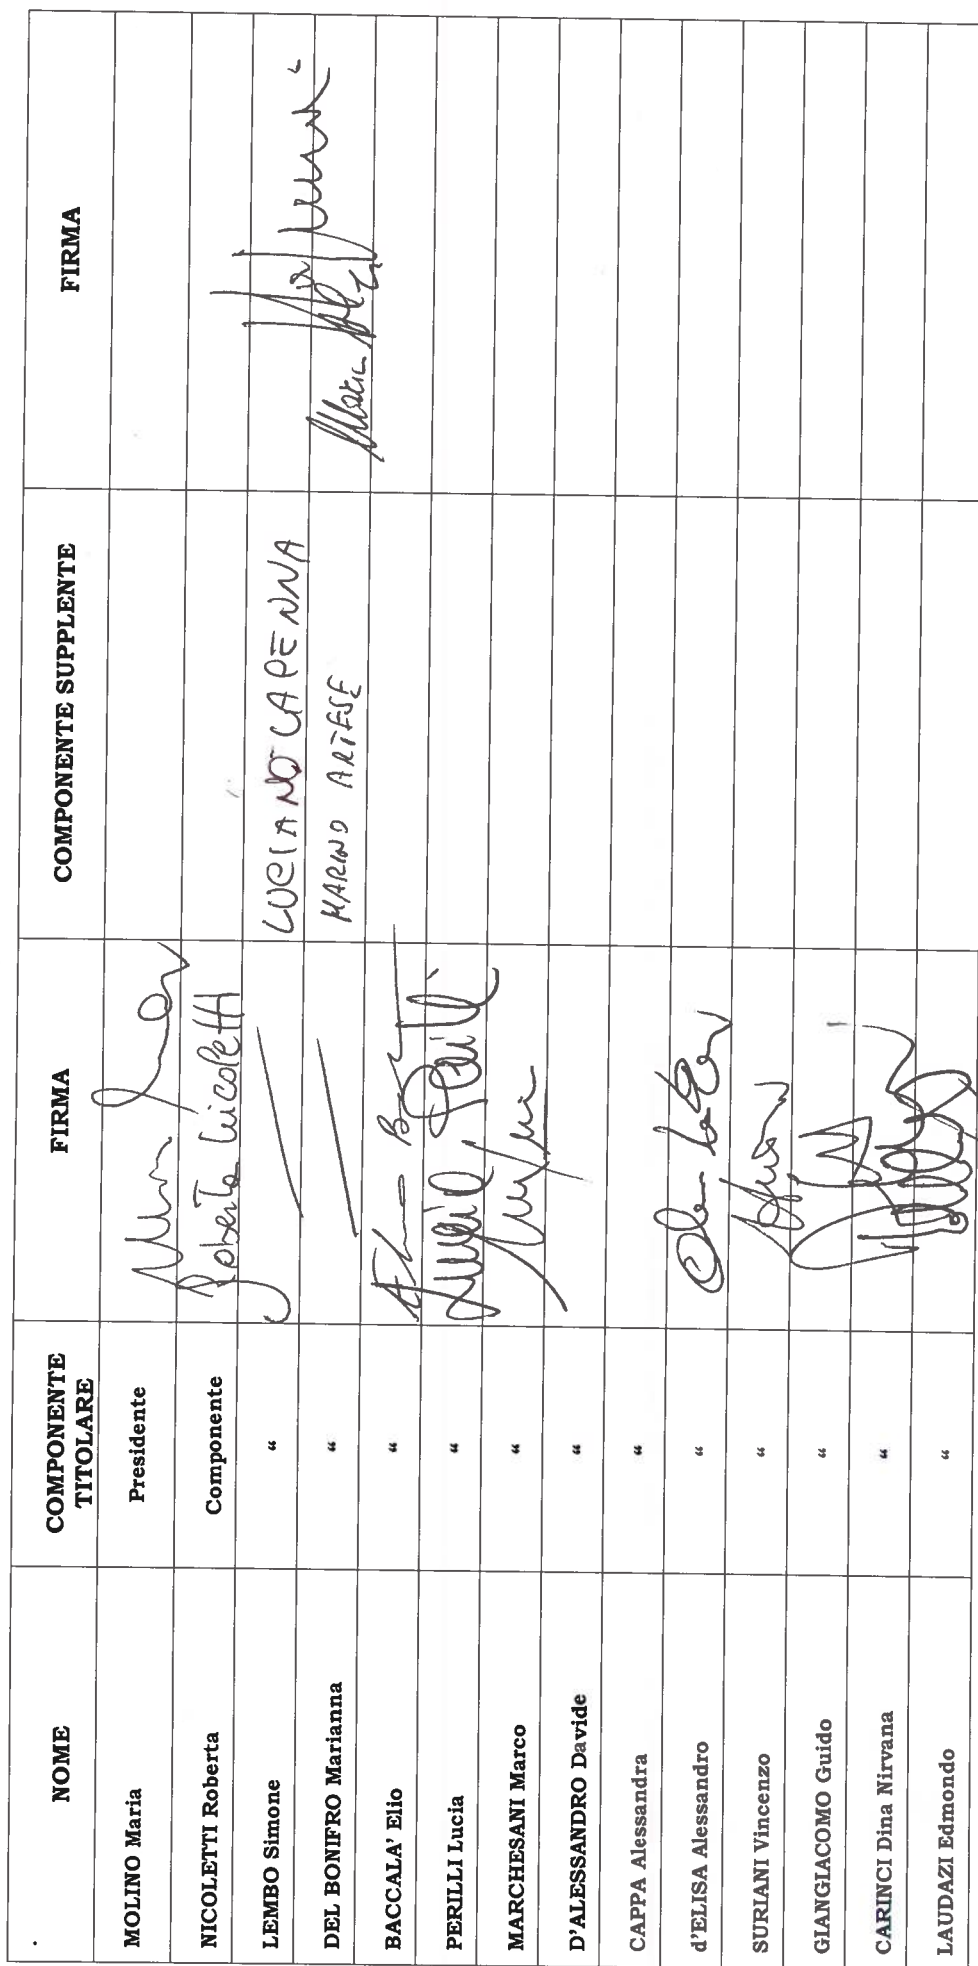 NOME COMPONENTE TITOLARE FIRMA COMPONENTE SUPPLENTE FIRMA
MOLINO Maria Presidente
NICOLETTI Roberta Componente Roberta Nicoletti
LEMBO Simone “ LUCIANO CAPENNA
DEL BONIFRO Marianna “ MARINO ARTESE
BACCALA' Elio “
PERILLI Lucia “ Lucia Perilli
MARCHESANI Marco “
D'ALESSANDRO Davide “
CAPPA Alessandra “
d'ELISA Alessandro “
SURIANI Vincenzo “
GIANGIACOMO Guido “
CARINCI Dina Nirvana “
LAUDAZI Edmondo “